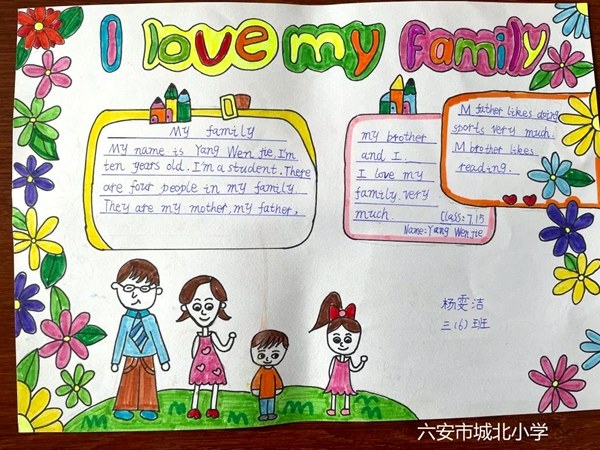 I love my family
My family
My name is Yang Wen jie. I'm
ten years old. I'm a student. There
are four people in my family
They are my mother, my father,
my brother
and I.
I love my
family. very
much.
Class: 7.15
Name: Yang Wenjie
M father likes doing
sports very much.
M brother likes
reading.
杨雯洁
三(6)班
六安市城北小学